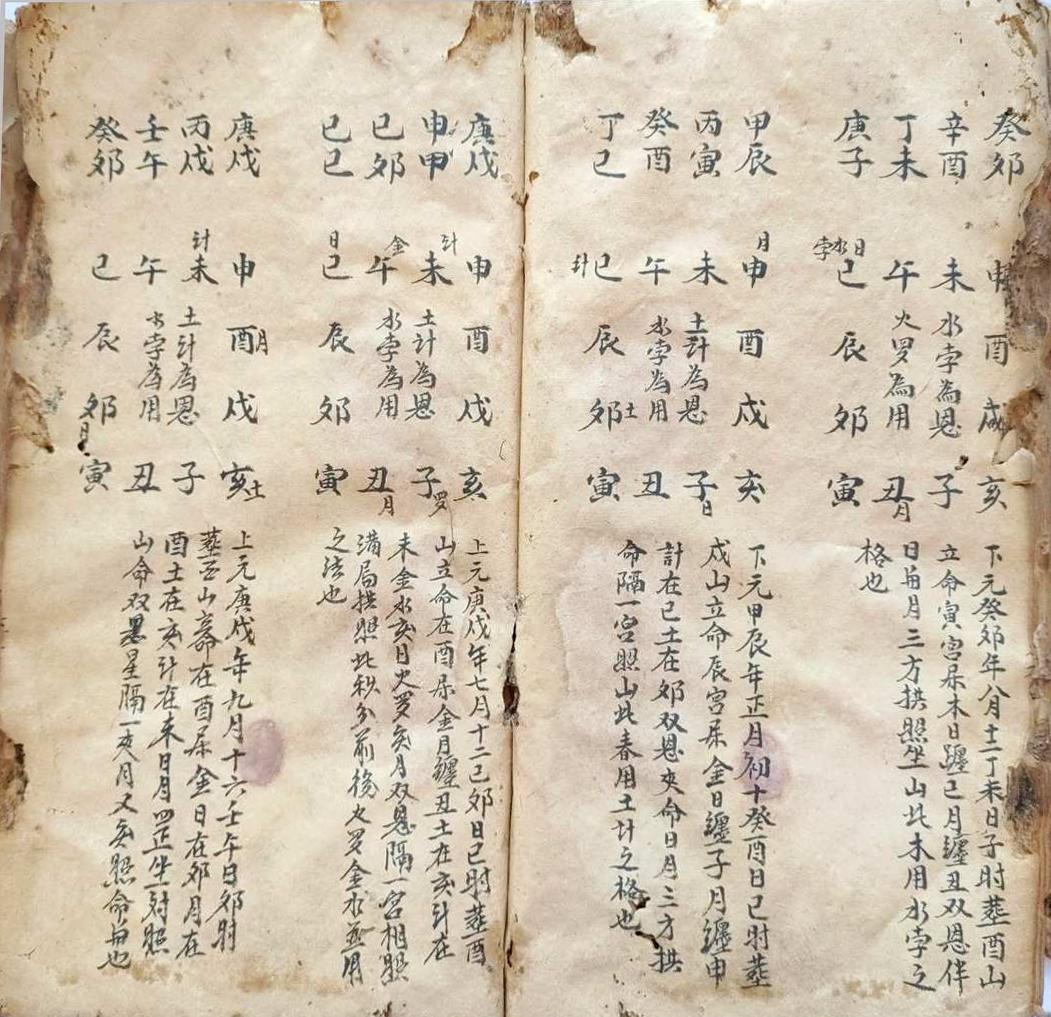 癸卯
辛酉
丁未
庚子
申 酉 戌 亥
未 水孛為恩 子
午 火罗為用 丑月
孛水日 巳 辰 卯 寅
下元癸卯年八月十二丁未日子时塟酉山
立命寅宫属木日躔巳月躔丑双恩伴
日月三方拱照坐山此木用水孛之
格也
甲辰
丙寅
癸酉
丁巳
月申 酉 戌 亥
未 土計為恩 子日
午 水孛為用 丑
計巳 辰 卯土 寅
下元甲辰年正月初十癸酉日巳时塟
戍山立命辰宫属金日躔子月躔申
計在巳土在卯双恩夾命日月三方拱
命隔一宫照山此春用土計之格也
庚戌
甲申
己卯
己巳
申 酉 戌 亥
計未 土計為恩 子罗
金午 水孛為用 丑月
日巳 辰 卯 寅
上元庚戌年七月十二己卯日巳时塟酉
山立命在酉属金月躔丑土在亥計在
未金水亥日火罗亥月双恩隔一宫相照
满局拱照此秋分前後火罗金水並用
之法也
庚戌
丙戌
壬午
癸卯
申 酉月 戌 亥土
計未 土計為恩 子
午 水孛為用 丑
巳 辰 卯日 寅
上元庚戌年九月十六壬午日卯时
塟山命在酉属金日在卯月在
酉土在亥計在未日月四正坐对照
山命双恩星隔一亥八月又亥照命也